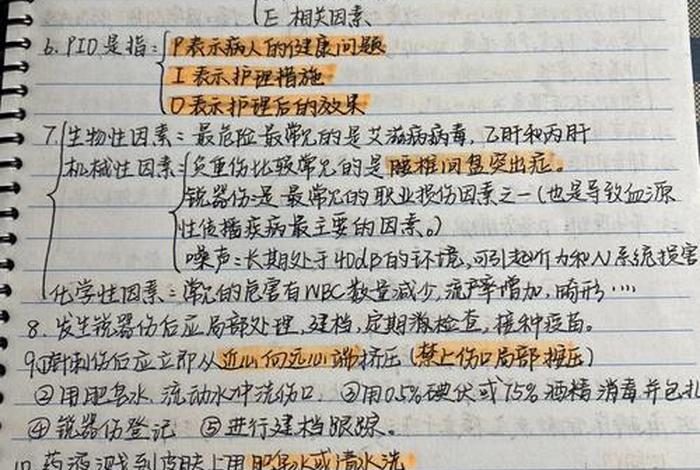 E 相关因素
6. PIO是指: P表示病人的健康问题
I 表示护理措施
O 表示护理后的效果
7. 生物性因素: 最危险最常见的是艾滋病病毒, 乙肝和丙肝
机械性因素: 负重伤比较常见的是腰椎间盘突出症。
锐器伤: 是最常见的职业损伤因素之一(也是导致血源
性传播疾病最主要的因素。)
噪声: 长期处于40dB的环境, 可引起听力和N系统损害
化学性因素: 常见的危害有WBC数量减少, 流产率增加, 畸形····
8. 发生锐器伤后应局部处理, 建档, 定期检查, 接种疫苗。
9. ①刺伤后应立即从近心向远心端挤压(禁止伤口局部按压)
②用肥皂水、流动水冲洗伤口、③用0.5%碘伏或75%酒精消毒并包扎
④锐器伤登记 ⑤进行建档跟踪。
10. 药液溅到皮肤上用肥皂水或清水洗